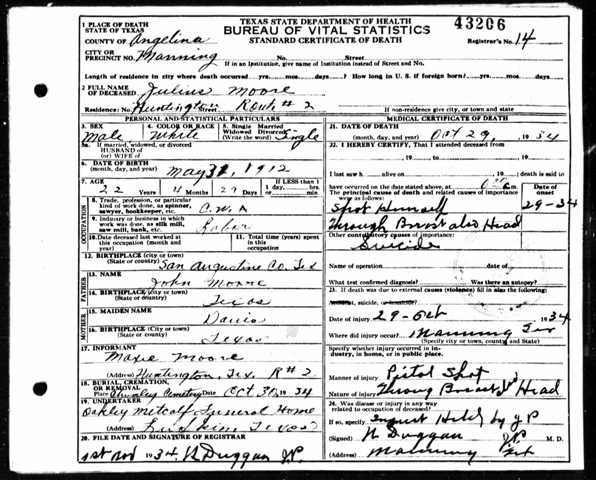 TEXAS STATE DEPARTMENT OF HEALTH
BUREAU OF VITAL STATISTICS
STANDARD CERTIFICATE OF DEATH
43206
Registrar's No. 14
1 PLACE OF DEATH
STATE OF TEXAS
COUNTY OF Angelina
CITY OR
PRECINCT NO. Manning No. Street
If in an Institution, give name of Institution instead of Street and No.
Length of residence in city where death occurred yrs. mos. days? How long in U. S. if foreign born? yrs. mos. days
2 FULL NAME
OF DECEASED Julius Moore
Residence: No. Huntington Street Route # 2
If non-residence give city, or town and state
PERSONAL AND STATISTICAL PARTICULARS
3. SEX
Male
4. COLOR OR RACE
White
5. Single Married
Widowed Divorced
(Write the word) Single
5a. If married, widowed, or divorced
HUSBAND of
(or) WIFE of
6. DATE OF BIRTH
(month, day, and year) May 31, 1912
7. AGE
22 Years 4 Months 29 Days
If LESS than
1 day,
hrs.
min.
OCCUPATION
8. Trade, profession, or particular
kind of work done, as spinner,
sawyer, bookkeeper, etc. C.W.A
9. Industry or business in which
work was done, as silk mill,
saw mill, bank, etc. Labor
10. Date deceased last worked at
this occupation (month and
year)
11. Total time (years)
spent in this
occupation
12. BIRTHPLACE (city or town)
(State or country) San Augustine Co. Tex
FATHER
13. NAME
John Moore
14. BIRTHPLACE (city or town)
(State or country) Texas
MOTHER
15. MAIDEN NAME
Davis
16. BIRTHPLACE (city or town)
(State or country) Texas
17. INFORMANT
Maxie Moore
(Address) Huntington, Tex. R # 2
18. BURIAL, CREMATION,
OR REMOVAL
Place Cemetery Date Oct 30, 1934
19. UNDERTAKER
Oakley Metcalf Funeral Home
(Address) Lufkin, Texas
20. FILE DATE AND SIGNATURE OF REGISTRAR
1st Nov 1934 N Duggan J.P.
MEDICAL CERTIFICATE OF DEATH
21. DATE OF DEATH
(month, day, and year) Oct 29, 1934
22. I HEREBY CERTIFY, That I attended deceased from
19 to 19
I last saw h alive on 19 death is said to
have occurred on the date stated above, at m.
The principal cause of death and related causes of importance
were as follows:
Date of
onset
Shot Himself 29-34
Through Breast also Head
Other contributory causes of importance:
Suicide
Name of operation
What test confirmed diagnosis? Was there an autopsy?
23. If death was due to external causes (violence) fill in also the following:
Accident, suicide, or homicide?
Date of injury 29-Oct 1934
Where did injury occur? Manning Tex
(Specify city or town, county and State)
Specify whether injury occurred in
industry, in home, or in public place.
Manner of injury Pistol Shot
Nature of injury Through Breast & Head
24. Was disease or injury any way
related to occupation of deceased?
If so, specify Inquest Held by JP
(Signed) N Duggan JP M. D.
(Address) Manning Tex